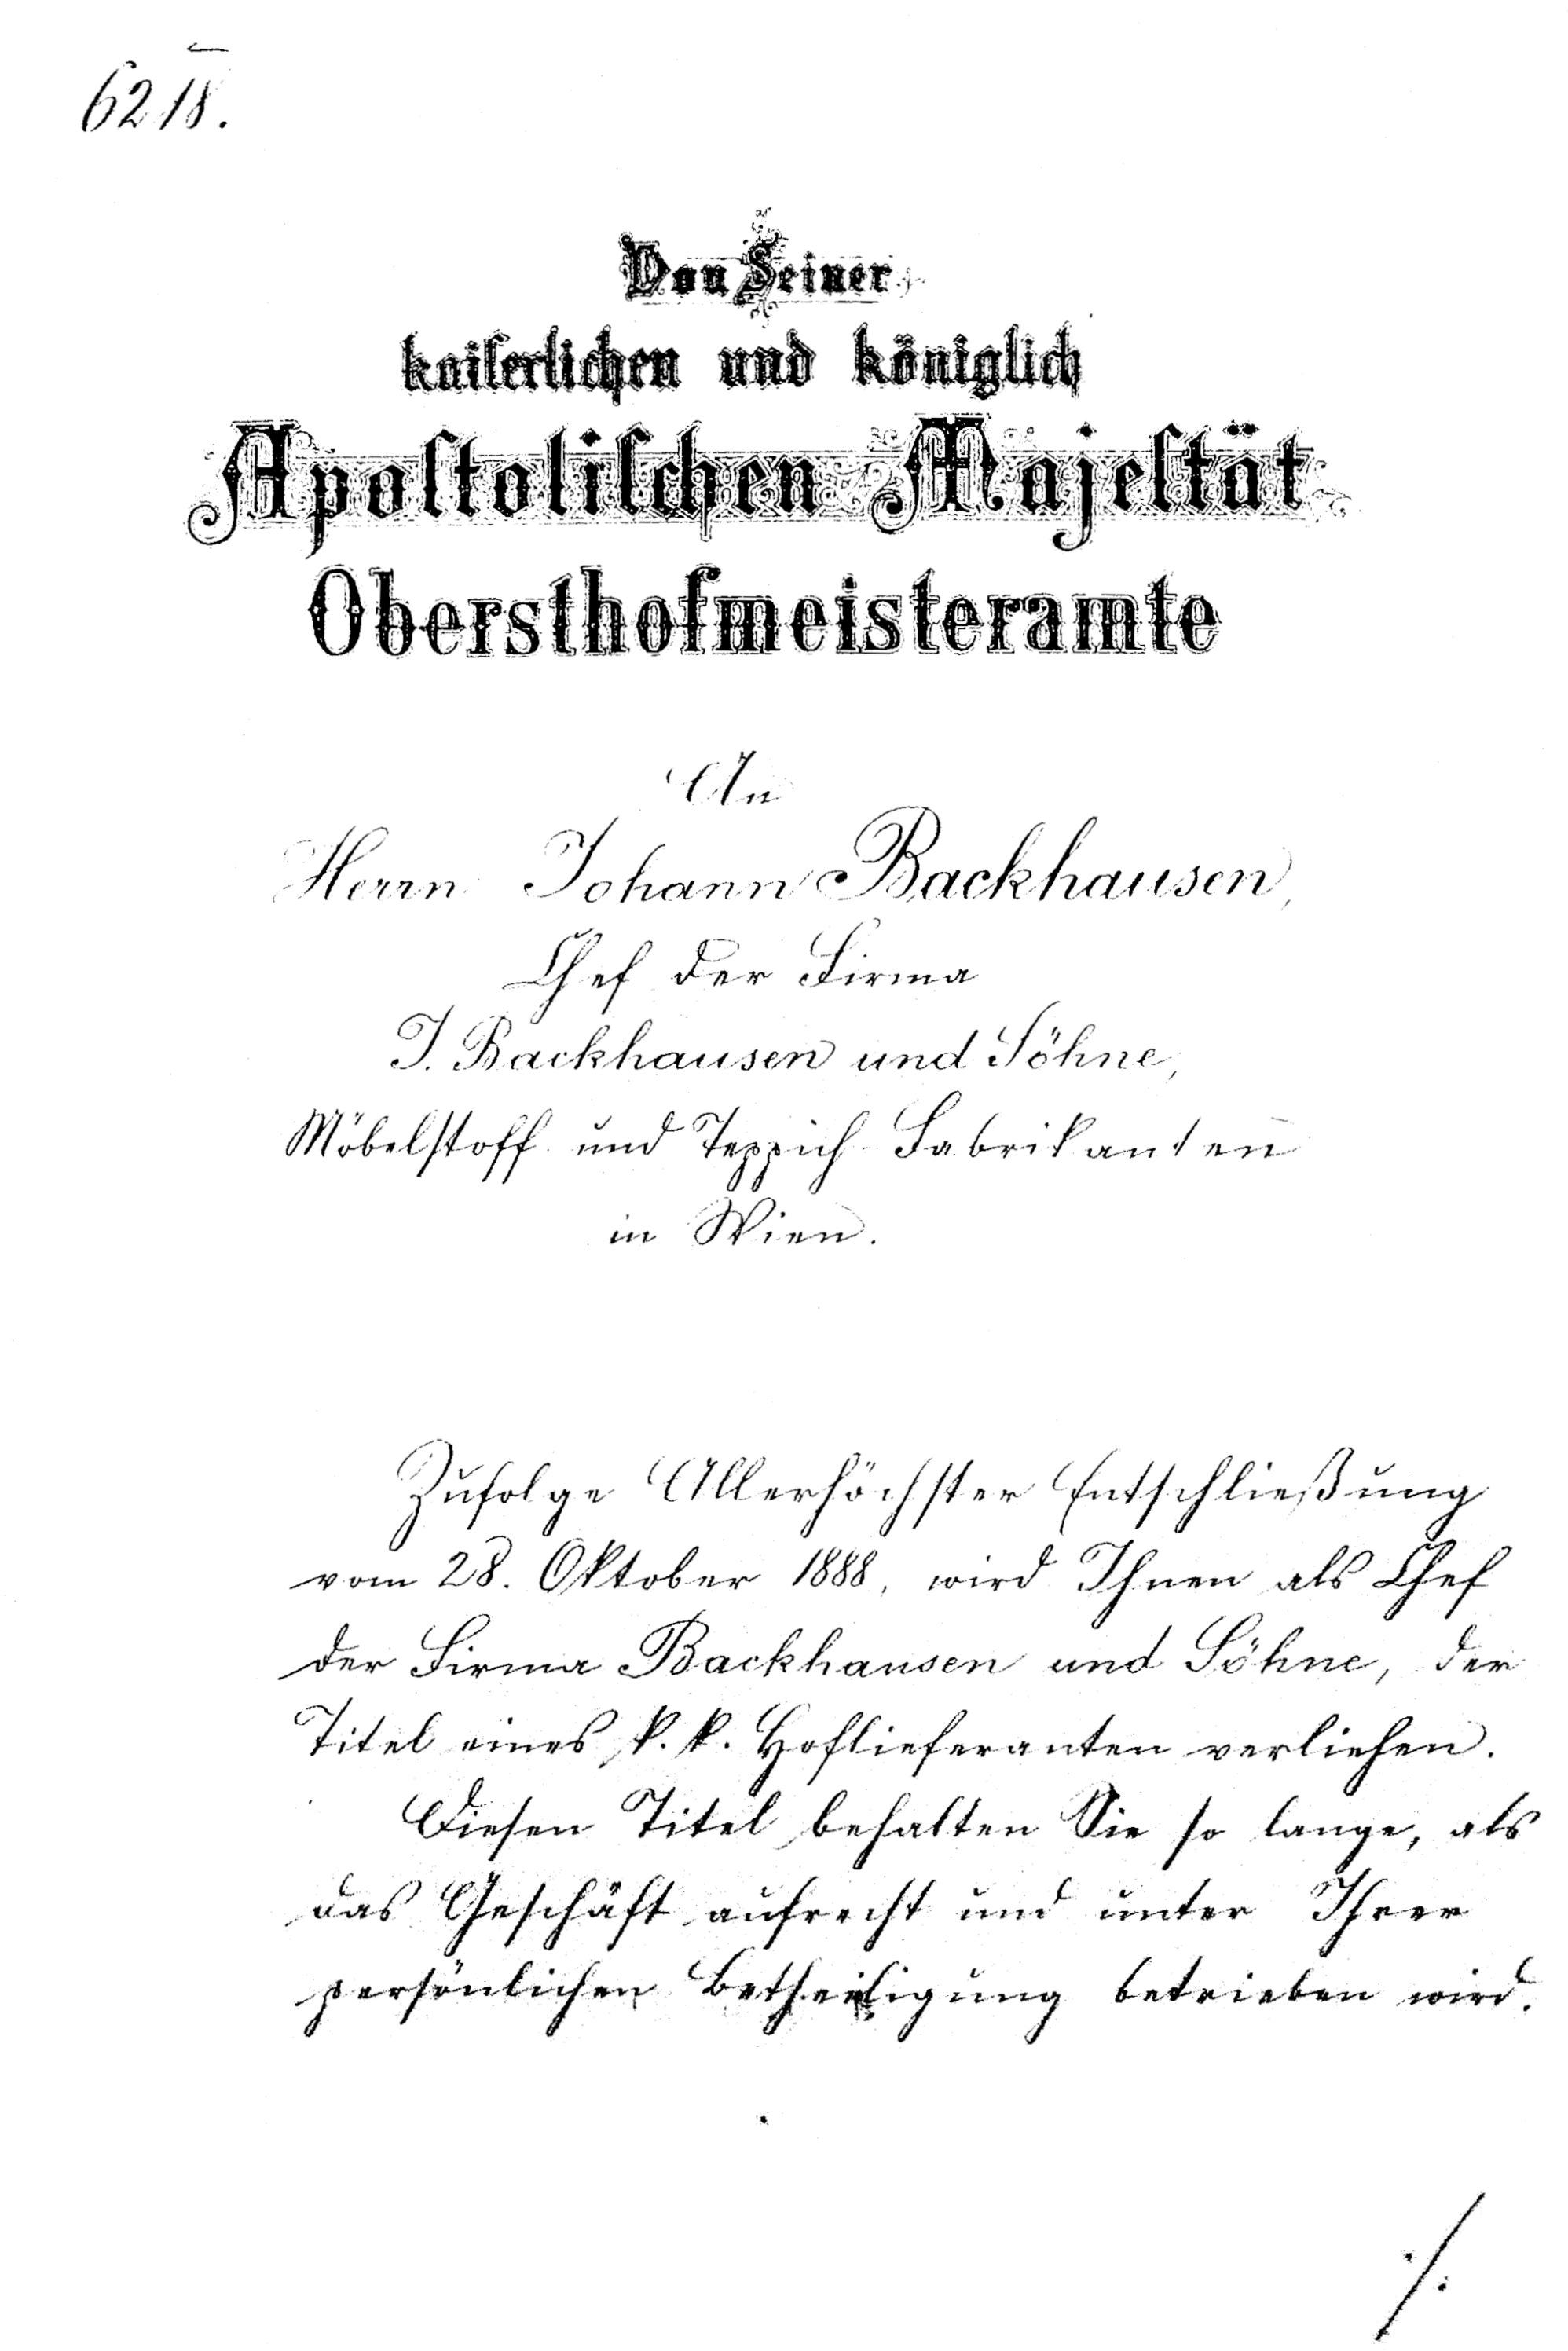 6218.
Von Seiner
kaiserlichen und königlich
Apostolischen Majestät
Obersthofmeisteramte
An
Herrn Johann Backhausen,
Chef der Firma
J. Backhausen und Söhne,
Möbelstoff- und Teppich-Fabrikanten
in Wien.
Zufolge Allerhöchster Entschließung
vom 28. Oktober 1888, wird Ihnen als Chef
der Firma Backhausen und Söhne, der
Titel eines k. k. Hoflieferanten verliehen.
Diesen Titel behalten Sie so lange, als
das Geschäft aufrecht und unter Ihrer
persönlichen Betheiligung betrieben wird.
./.